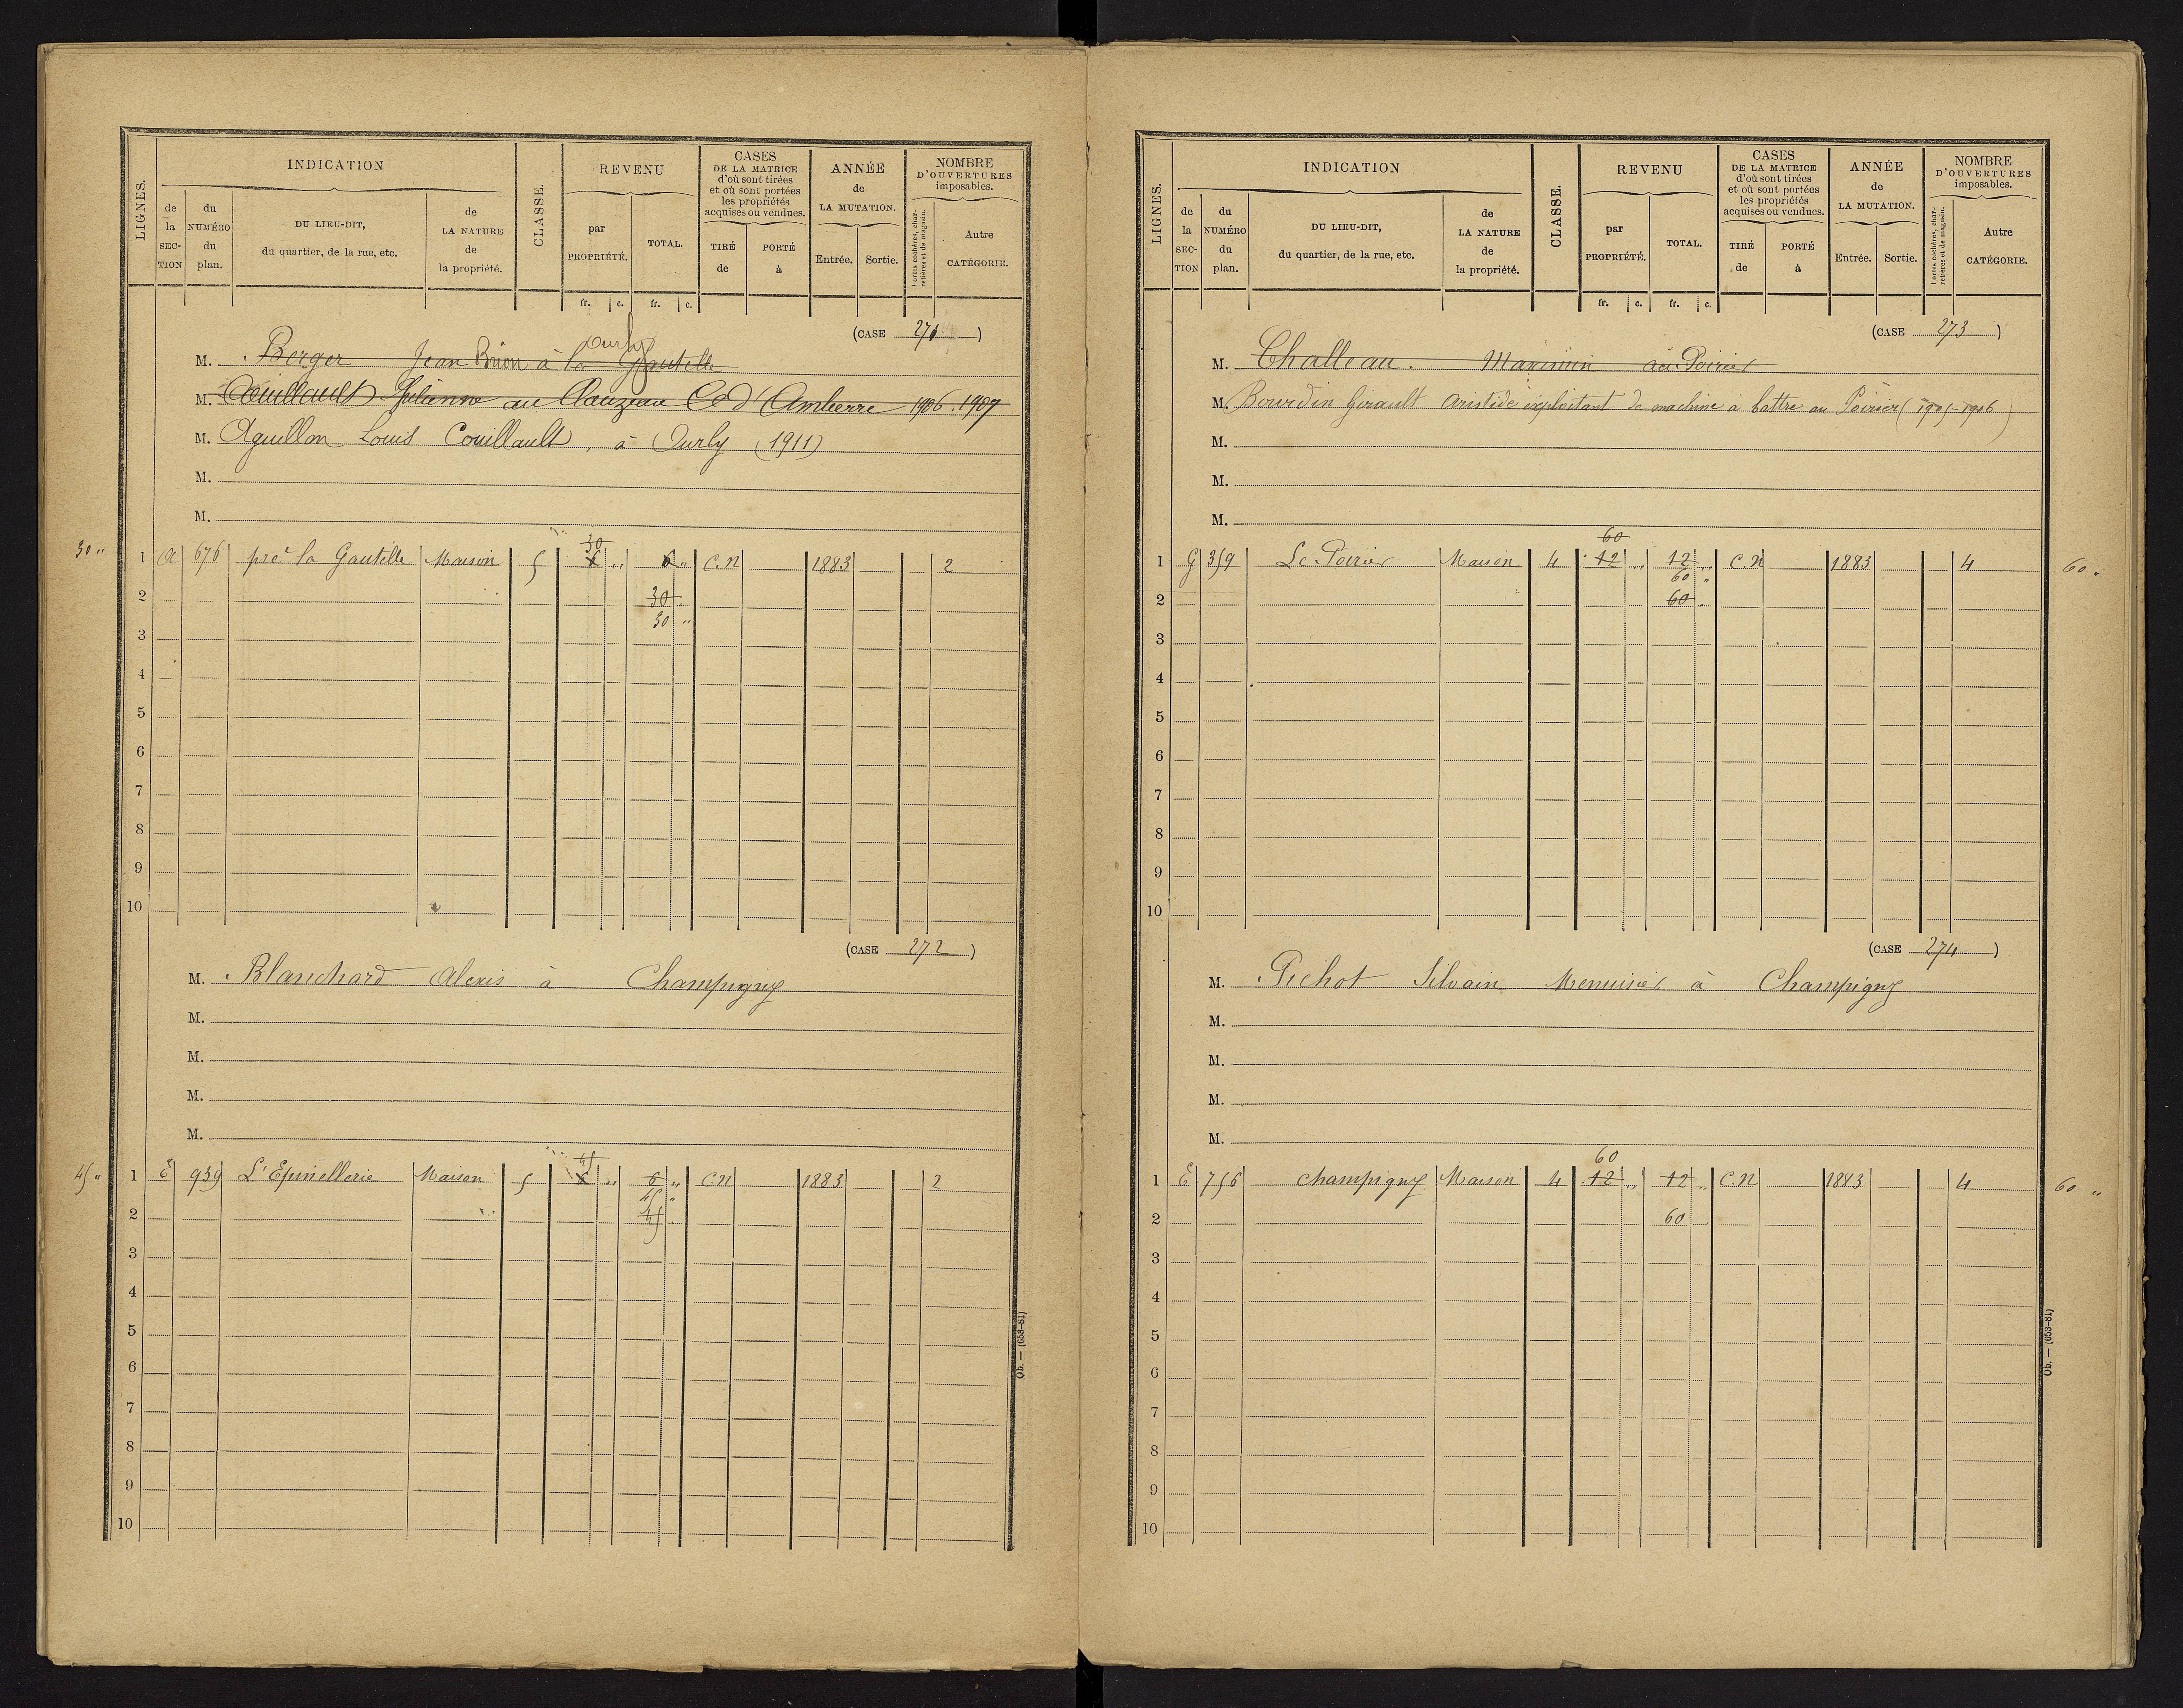 LIGNES.
INDICATION
de la SECTION
du NUMÉRO du plan.
DU LIEU-DIT, du quartier, de la rue, etc.
de LA NATURE de la propriété.
CLASSE.
REVENU
par PROPRIÉTÉ.
TOTAL.
fr. c. fr. c.
CASES DE LA MATRICE d'où sont tirées et où sont portées les propriétés acquises ou vendues.
TIRÉ de
PORTÉ à
ANNÉE de LA MUTATION.
Entrée. Sortie.
NOMBRE D'OUVERTURES imposables.
Portes cochères, charretières et de magasin.
Autre CATÉGORIE.
(CASE 271)
Ourly
M. Berger Jean Brion à la Gautelle
M. Couillault Julienne au Clauzeau Cne d'Amberre 1906.1907
M. Aguillon Louis Couillault, à Ourly (1911)
M.
M.
30
30 " 1 A 676 pré la Gautelle Maison 5 6 " 6 " C.N 1883 2
2 30
3 30 "
4
5
6
7
8
9
10
(CASE 272)
M. Blanchard Alexis à Champigny
M.
M.
M.
M.
45
45 " 1 E 939 L'Epinellerie Maison 5 6 " 6 " C.N 1883 2
45 "
2 45
3
4
5
6
7
8
9
10
Ob. — (653-81)
LIGNES.
INDICATION
de la SECTION
du NUMÉRO du plan.
DU LIEU-DIT, du quartier, de la rue, etc.
de LA NATURE de la propriété.
CLASSE.
REVENU
par PROPRIÉTÉ.
TOTAL.
fr. c. fr. c.
CASES DE LA MATRICE d'où sont tirées et où sont portées les propriétés acquises ou vendues.
TIRÉ de
PORTÉ à
ANNÉE de LA MUTATION.
Entrée. Sortie.
NOMBRE D'OUVERTURES imposables.
Portes cochères, charretières et de magasin.
Autre CATÉGORIE.
(CASE 273)
M. Challeau. Maximin au Poirier
M. Bourdin Girault Aristide exploitant de machine à battre au Poirier (1905-1906)
M.
M.
M.
60
1 G 359 Le Poirier Maison 4 12 " 12 " C.N 1883 4 60 "
60 "
2 60
3
4
5
6
7
8
9
10
(CASE 274)
M. Pichot Silvain Menuisier à Champigny
M.
M.
M.
M.
60
1 E 756 Champigny Maison 4 12 " 12 " C.N 1883 4 60 "
2 60
3
4
5
6
7
8
9
10
Ob. — (653-81)